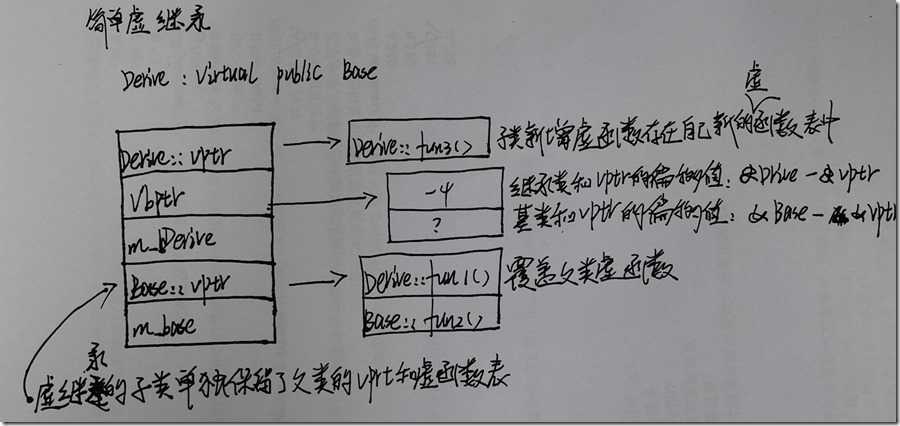 简单虚继承
Derive : Virtual public Base
Derive::vptr
Derive::fun3()
子类新增虚函数存在自己新的虚函数表中
Vbptr
-4
继承类和vptr的偏移值：&Drive-&vptr
?
基类和vptr的偏移的值：&Base-&vptr
m_Derive
Base::vptr
Derive::fun1()
覆盖父类虚函数
m_base
Base::fun2()
虚继承的子类单独保留了父类的vprt和虚函数表